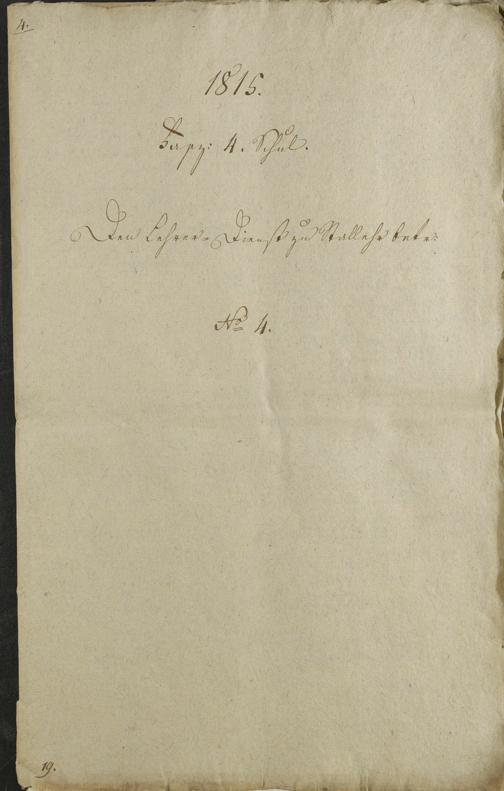 4.
1815.
Fasz: 4. Schul.
Den Lehrer-Dienst zu Stallehr betr:
No 4.
19.